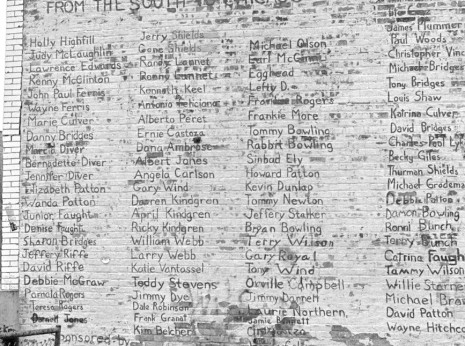 FROM THE SOUTH TO
Holly Highfill
Judy McLaughlin
Lawrence Edwards
Kenny McClinton
John Paul Ferris
Wayne Ferris
Marie Culver
Danny Bridges
Marcia Diver
Bernadette Diver
Jennifer Diver
Elizabeth Patton
Wanda Patton
Junior Faught
Denise Faught
Sharon Bridges
Jeffery Riffe
David Riffe
Debbie McGraw
Pamela Rogers
Teresa Rogers
Darnell Jones
Sponsored by
Jerry Shields
Gene Shields
Randy Lonnet
Ronny Lonnets
Kenneth Keel
Antonio Feliciano
Alberto Peret
Ernie Castoza
Dana Ambrose
Albert Jones
Angela Carlson
Gary Wind
Darren Kindgren
April Kindgren
Ricky Kindgren
William Webb
Larry Webb
Katie Vantassel
Teddy Stevens
Jimmy Dye
Dale Robinson
Frank Granat
Kim Belcher
Michael Olson
Earl
Egghead
Lefty D.
Frankie Rogers
Frankie More
Tommy Bowling
Rabbit Bowling
Sinbad Ely
Howard Patton
Kevin Dunlap
Tommy Newton
Jeffery Stalker
Bryan Bowling
Terry Wilson
Gary Royal
Tony Wind
Orville Campbell
Jimmy Darnell
Laurie Northern
Jamie Bennett
James Plummer
Paul Woods
Christopher
Michael Bridges
Tony Bridges
Louis Shaw
Katrina Culver
David Bridges
Charles Pool
Becky Giles
Thurman Shields
Michael
Debbie Patton
Damon Bowling
Ronal Bunch
Terry Bunch
Catrina
Tammy Wilson
Willie
Michael
David Patton
Wayne